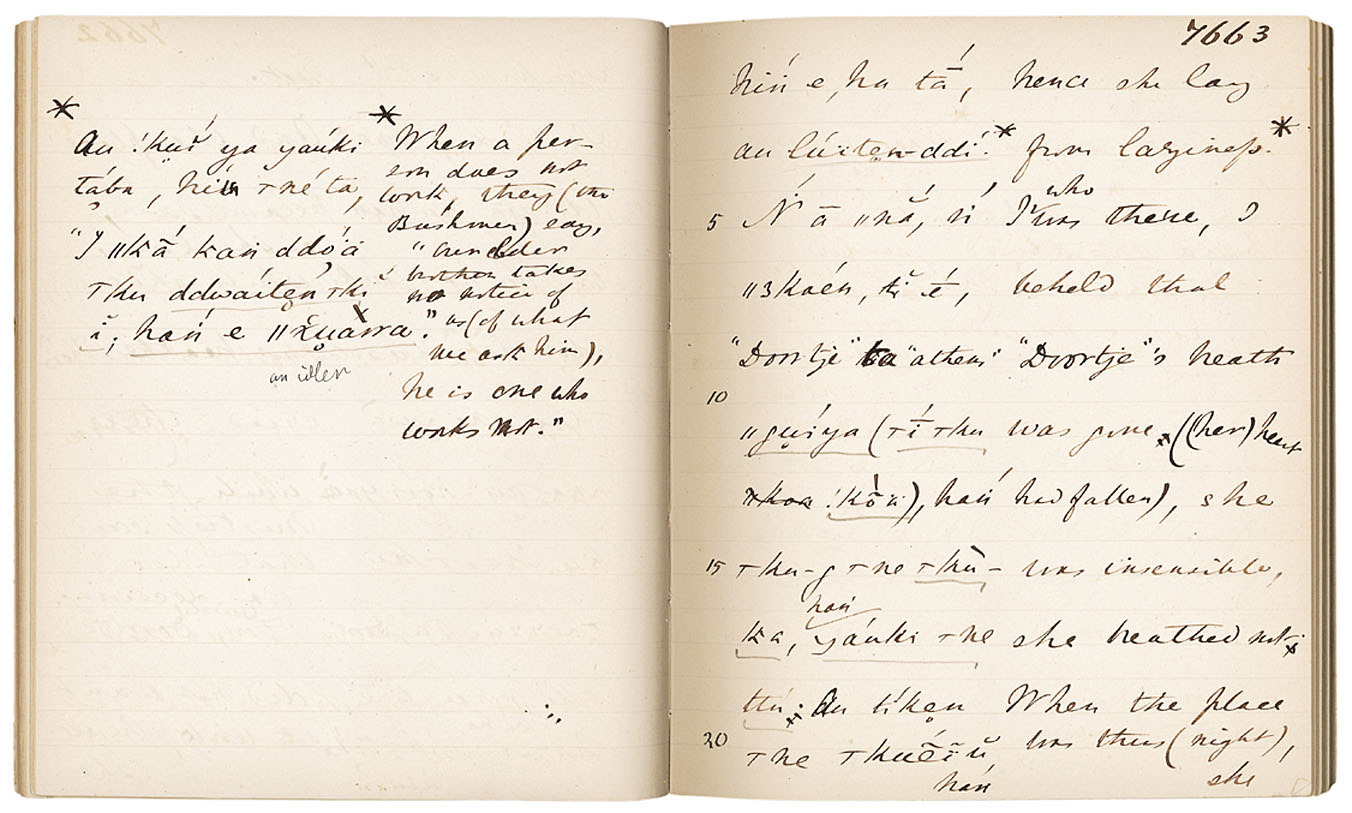 7662
*
Au !kuï ya yaúki
tába, hiń ꞇné ta,
"I ǁkā kań ddóä
ꞇku ddwáitenꞇki
ĭ; hań e ǁžuárra."
an idler
*
When a per-
son does not
work, they (the
Bushmen) say,
"our elder
brother takes
no notice of
us (of what
we ask him),
he is one who
works not."
7663
hiń e, ha tā́, hence she lay
au lúiten-ddí.* from laziness.*
5 Ń ā ǁnă, ń I who was there, I
beheld that
"Doortje" ta "athem" "Doortje"'s heath
10
ǁgúíya (ꞇí ꞇku was gone ((her) heart
ǁkoa !kŏ́ä), hań had fallen), she
15 ꞇku-g ꞇne ꞇkù- was insensible,
hań
ka, yáuki ꞇne she heathed not
ttú; Au tíken When the place
20 ꞇne was thus (night),
hań she